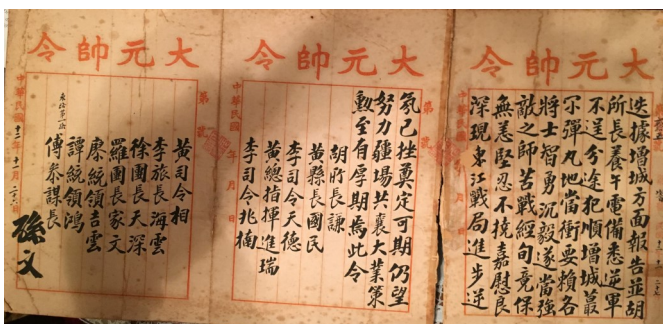 大元帥令
迭據增城方面報告並胡
所長養午電備悉逆軍
不逞分途犯順增城蕞
尒彈丸地當衝要賴各
將士智勇沉毅遂當強
敵之師苦戰經旬竟保
無恙堅忍不撓嘉慰良
深現東江戰局進步逆
中華民國
大元帥令
第 號
氛已挫奠定可期仍望
努力疆場共襄大業策
勲至有厚期焉此令
胡所長謙
黃縣長國民
李司令天德
黃總指揮進瑞
李司令兆楠
中華民國 年 月 日
大元帥令
黃司令相
李旅長海雲
徐團長天深
羅團長家文
廖統領吉雲
譚統領鴻
傅參謀長
中華民國十二年十一月二十六
孫文